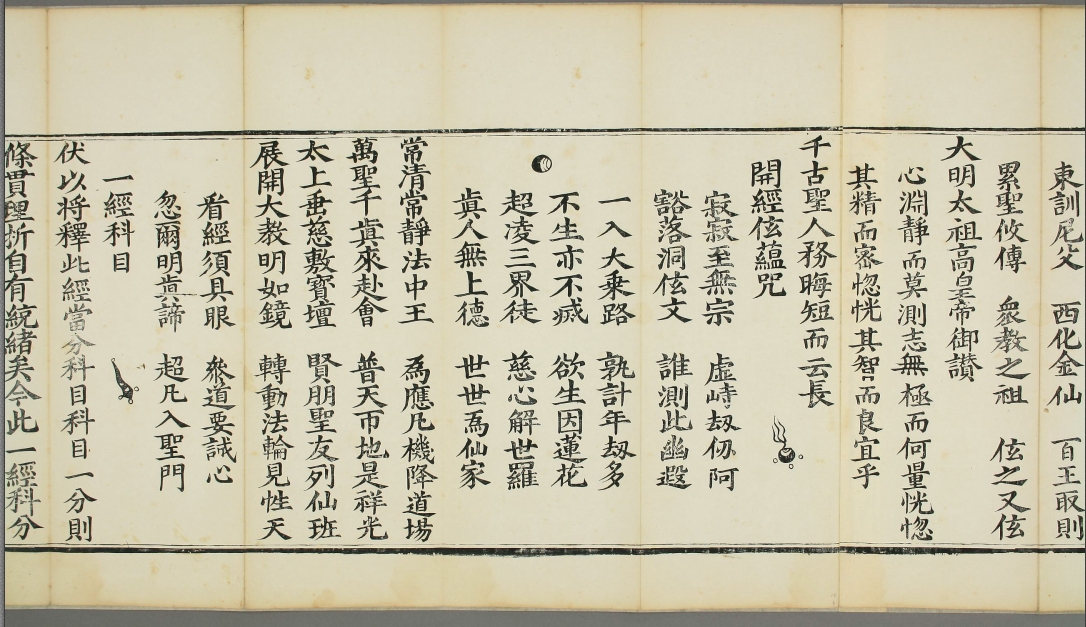 東訓尼父　西化金仙　百王取則
累聖攸傳　衆教之祖　伭之又伭
大明太祖高皇帝御讃
心淵靜而莫測志無極而何量恍惚
其精而密惚恍其智而良宜乎
千古聖人務晦短而云長
開經伭蘊咒
寂寂至無宗　虛峙刼仞阿
豁落洞伭文　誰測此幽遐
一入大乗路　孰計年刼多
不生亦不滅　欲生因蓮花
超凌三界徒　慈心解世羅
眞人無上德　世世爲仙家
常清常靜法中王　爲應凡機降道場
萬聖千眞來赴會　普天帀地是祥光
太上垂慈敷寳壇　賢朋聖友列仙班
展開大教明如鏡　轉動法輪見性天
看經須具眼　叅道要誠心
忽爾明眞諦　超凡入聖門
一經科目
伏以将釋此經當分科目科目一分則
條貫理析自有統緒矣今此一經科分